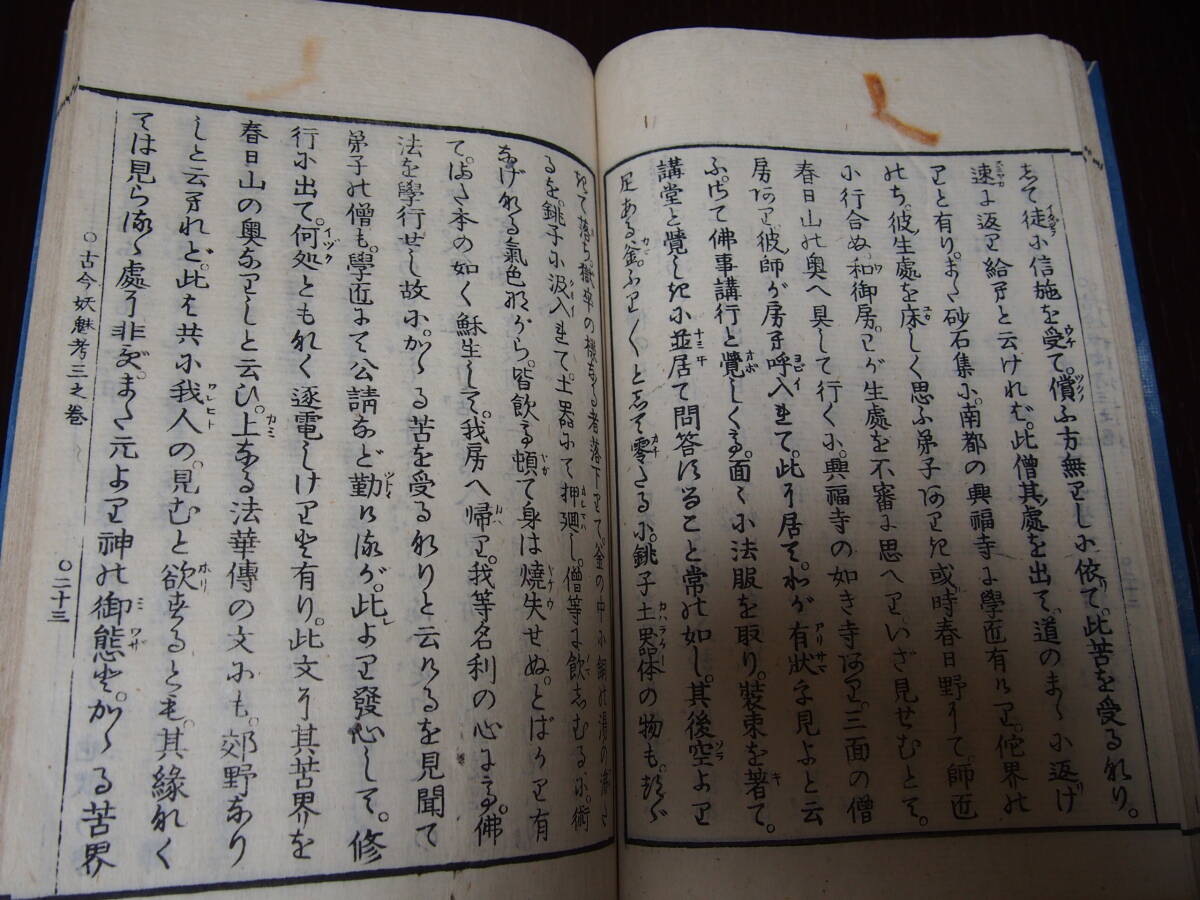 して徒に信施を受て。償ふ方無りしに依て。此苦を受るなり。
速に返り給へと云ければ。此僧其處を出て。道のまゝに返げ
りと有り。また砂石集に。南都の興福寺に學匠有けり。他界の
のち。彼生處を床しく思ふ弟子ありき。或時春日野にて。師匠
に行合ぬ。和御房。わが生處を不審に思へり。いざ見せむとて。
春日山の奥へ具して行くに。興福寺の如き寺あり。三面の僧
房あり。彼師が房に呼入れて。此に居て。わが有狀を見よと云
ふ。さて佛事講行と覺しくて。面々に法服を取り。裝束を著て。
講堂と覺しきに並居て問答すること常の如し。其後空より
足ある釜。ふり〱として零たるに。銚子土器体の物も。
きて落ち。獄卒の機なる者落下りて。釜の中に銅の湯の
るを。銚子に汲入れて。土器にて押廻し。僧等に飲しむるに。術
なげなる氣色ながら。皆飲て。頓て身は燒失せぬ。とばかり有
て。また本の如く穌生して。我房へ帰り。我等名利の心にて。佛
法を學行せし故に。かゝる苦を受るなりと云けるを見聞て
弟子の僧も。學匠にて公請など勤けるが。此より發心して。修
行に出て。何処ともなく逐電しけりと有り。此文に其苦界を
春日山の奥なりしと云ひ。上なる法華傳の文にも。郊野なり
しと云されど。此は共に我人の。見むと欲するとも。其緣なく
ては見らるゝ處に非ず。また元より神の御態と。かゝる苦界
○古今妖魅考三之卷 ○二十三